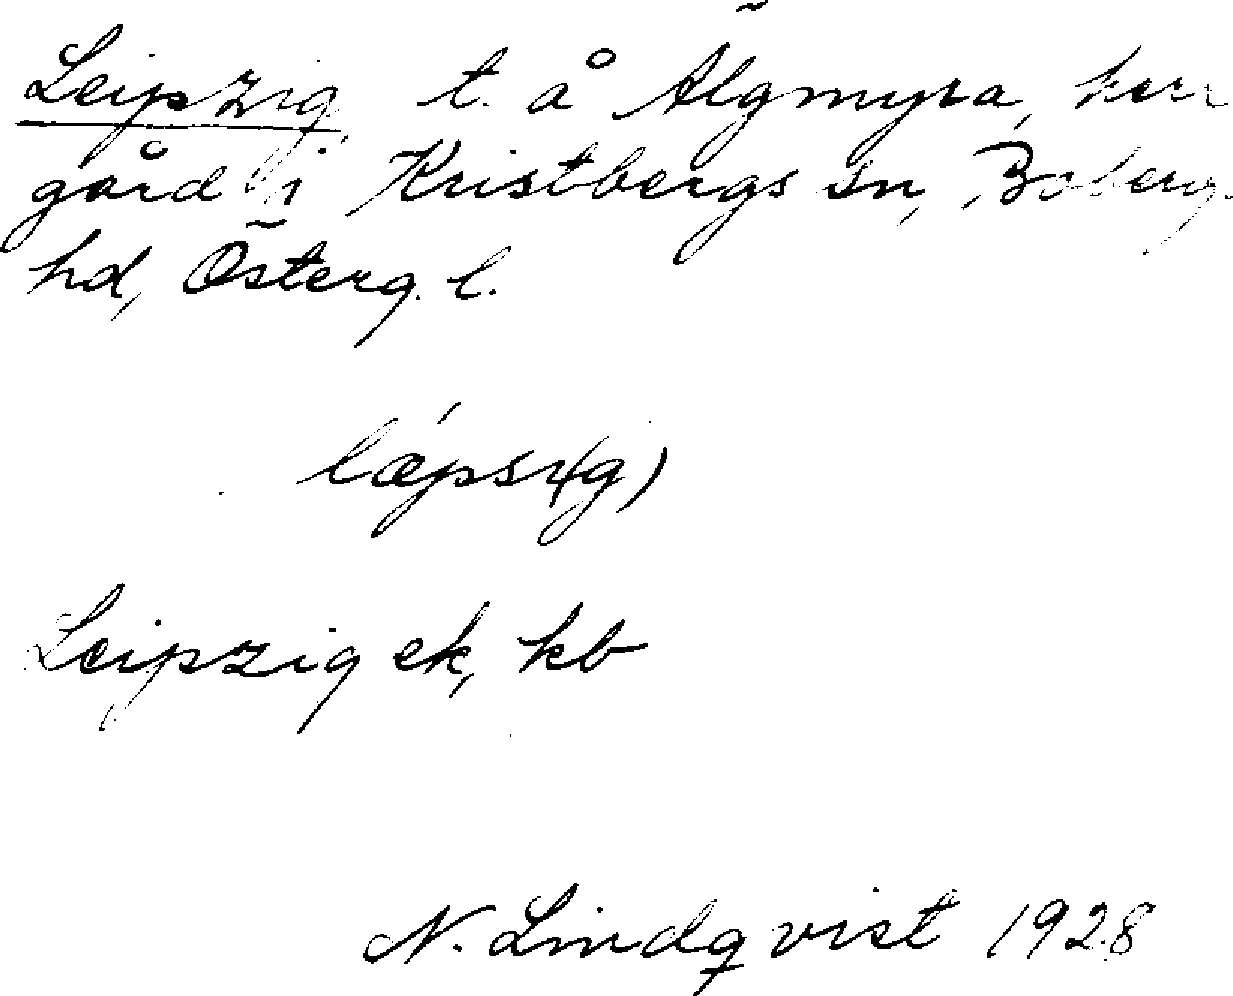 Leipzig, t. å Älgmyra, herr
gård i Kristbergs sn, Boberg.
hd, Österg. l.
lǽpsi(g)
Leipzig ek, kb
N. Lindqvist 1928